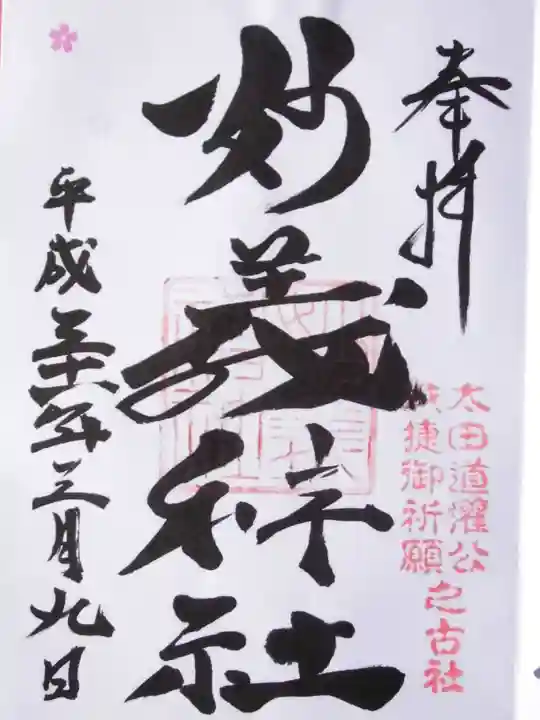 奉拝
太田道灌公
戦捷御祈願
之古社
妙義神社
平成三十一年三月九日